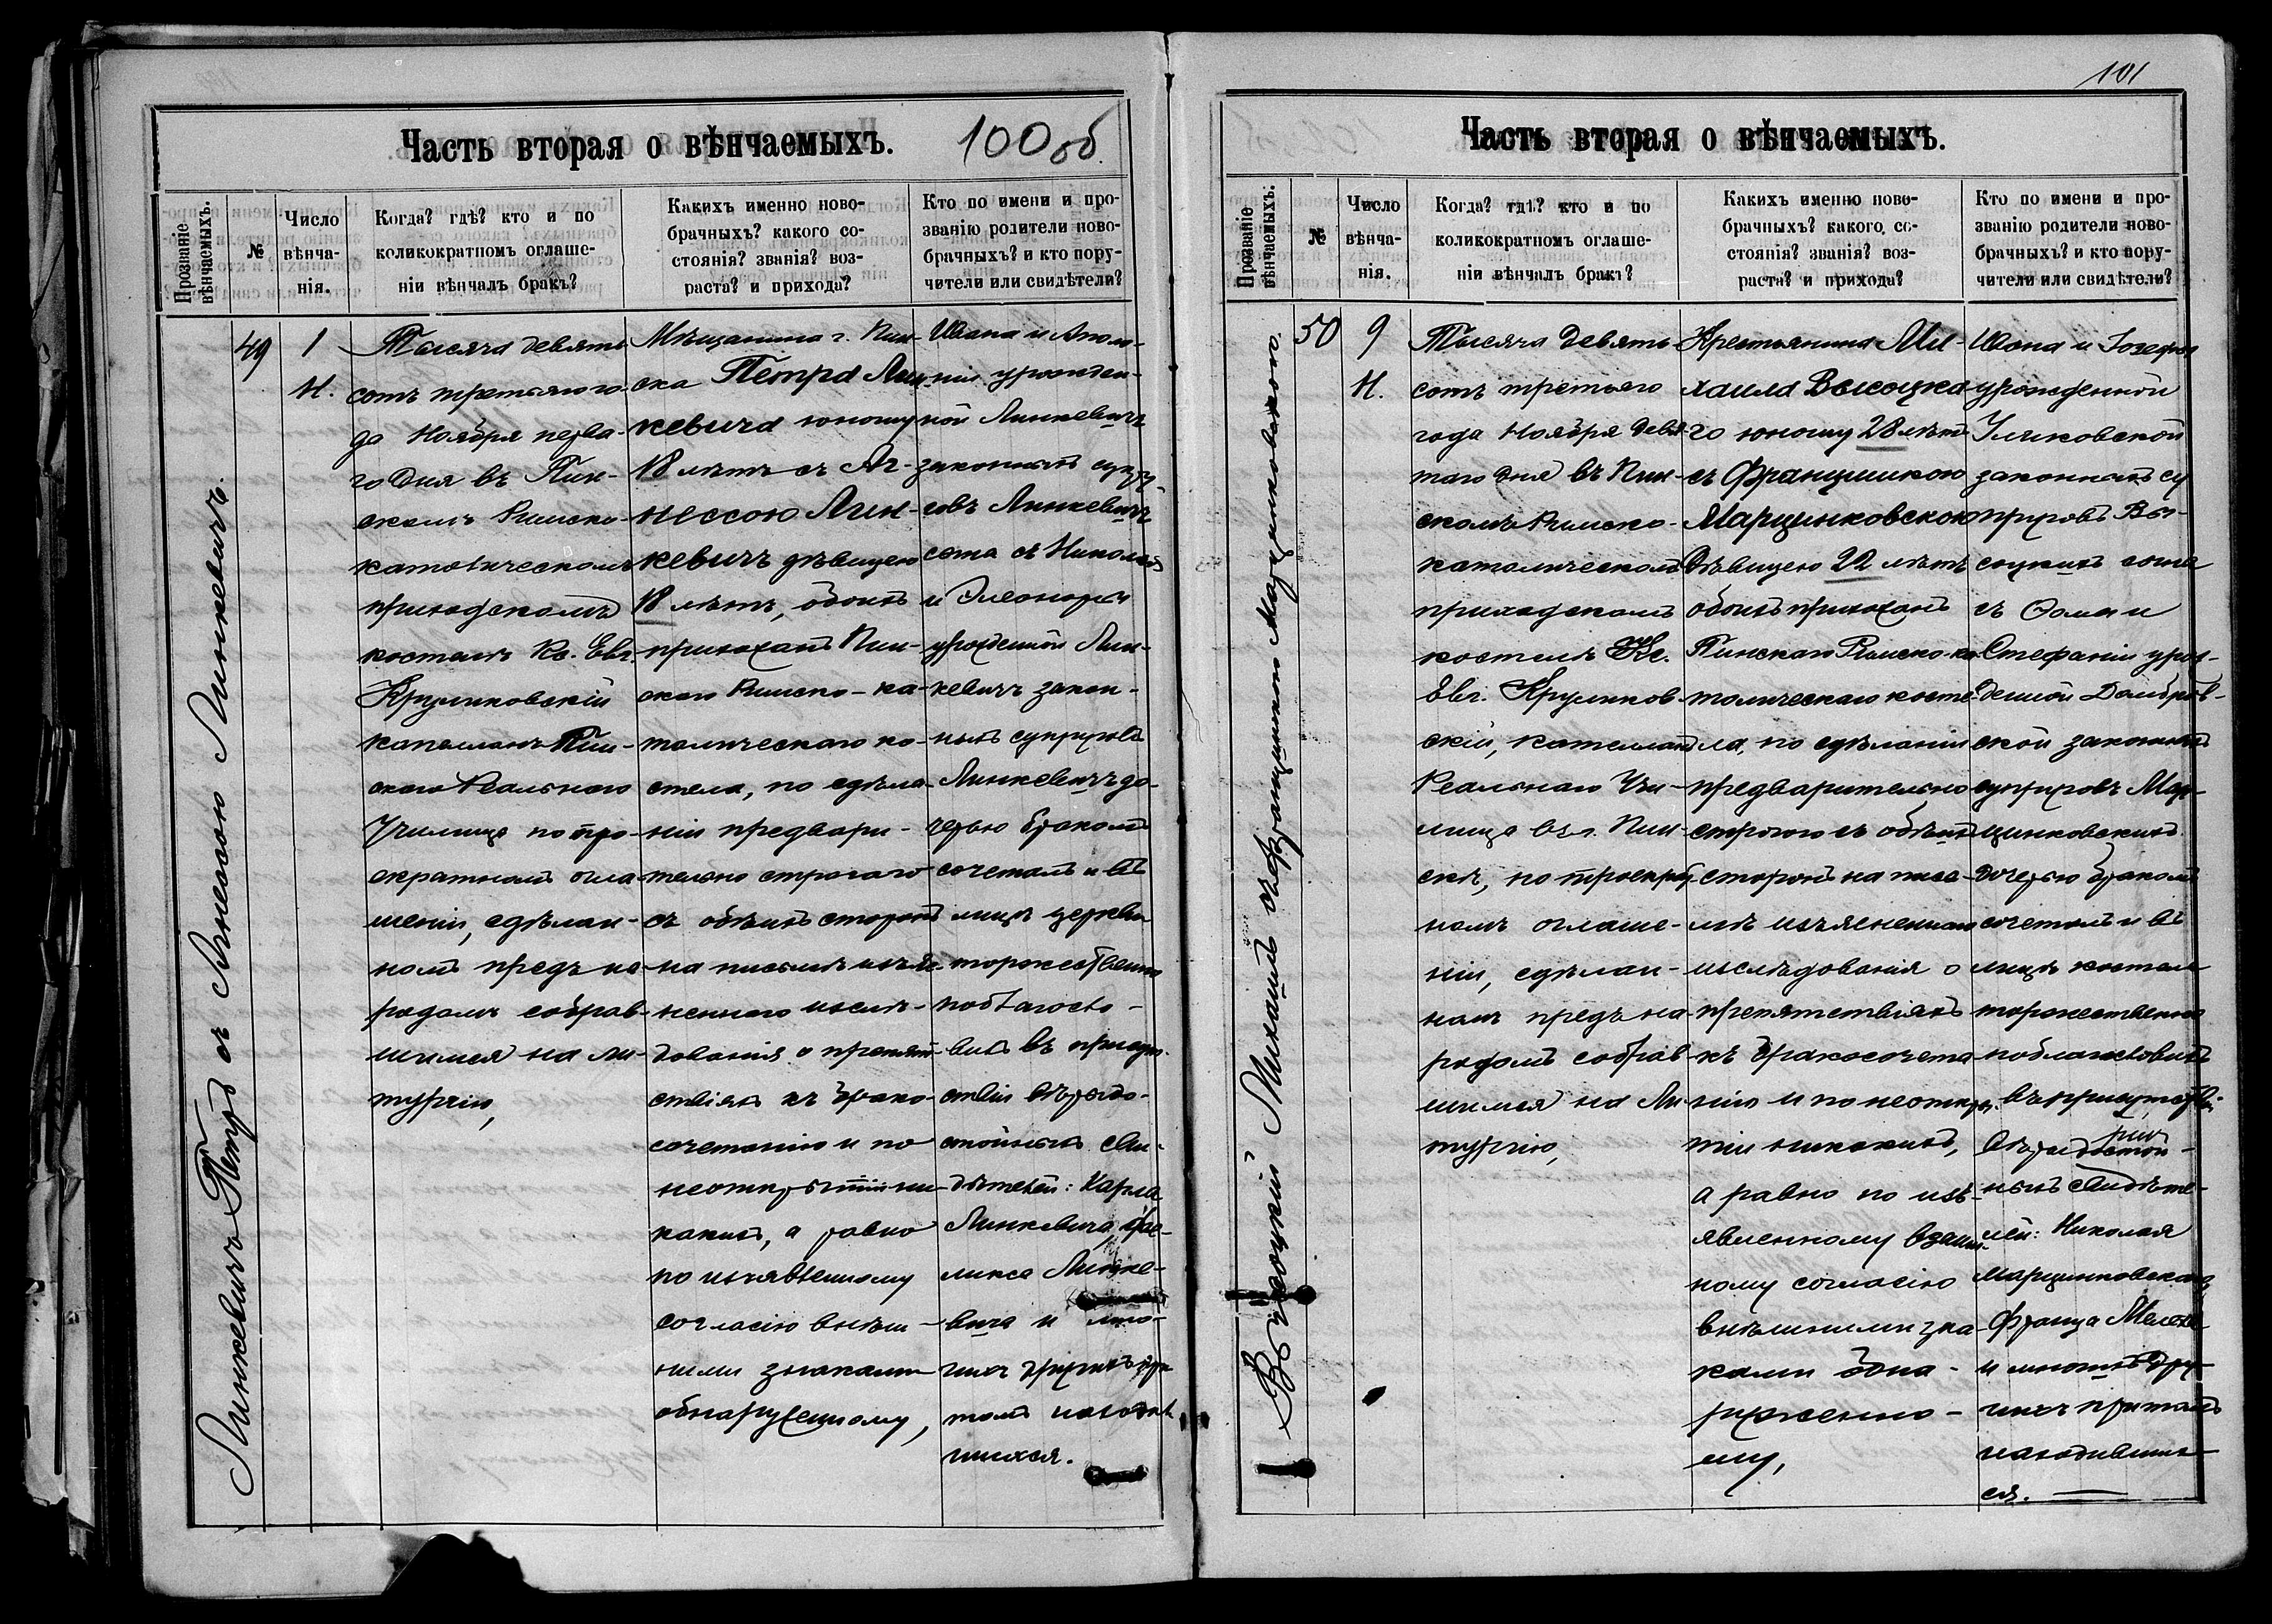 Часть вторая о вѣнчаемыхъ.
100 об.
Прозваніе вѣнчаемыхъ.
№
Число вѣнча-
нія.
Когда? гдѣ? кто и по
коликократномъ оглаше-
ніи вѣнчалъ бракъ?
Какихъ именно ново-
брачныхъ? какого со-
стоянія? званія? воз-
раста? и прихода?
Кто по имени и про-
званію родители ново-
брачныхъ? и кто пору-
чители или свидѣтели?
Линкевичъ Петръ съ Агнессою Линкевичъ.
49
1
Н.
Тысяча девять
сотъ третьяго го-
да Ноября перва-
го дня въ Пин-
скомъ Римско-
католическомъ
приходскомъ
костелѣ Кс. Евг.
Круликовскій
капелланъ Пин-
скаго Реальнаго
Училища по тро-
екратномъ огла-
шеніи, сдѣлан-
номъ предъ на-
родомъ собрав-
шимся на ли-
тургію,
Мѣщанина г. Пин-
ска Петра Лин-
кевича юношу
18 лѣтъ съ Аг-
нессою Лин-
кевичъ дѣвицею
18 лѣтъ, обоихъ
прихожанъ Пин-
скаго Римско-ка-
толическаго ко-
стела, по сдѣла-
ніи предвари-
тельно строгаго
съ обѣихъ сторонъ
на письмѣ изъяс-
неннаго изслѣ-
дованія о препят-
ствіяхъ къ брако-
сочетанію и по
неоткрытіи ни-
какихъ, а равно
по изъявленному
согласію внѣш-
ними знаками
обнаруженному,
Ивана и Аполо-
ніи урожден-
ной Линкевичъ
законныхъ супру-
говъ Линкевичъ
сына съ Николая
и Элеоноры
урожденной Лин-
кевичъ закон-
ныхъ супруговъ
Линкевичъ до-
черью бракомъ
сочеталъ и въ
лицѣ церкви
торжественно
поблагосло-
вилъ въ присут-
ствіи вѣродо-
стойныхъ сви-
дѣтелей: Карла
Линкевича, Фе-
ликса Линке-
вича и мно-
гихъ другихъ при
томъ находив-
шихся.
101
Часть вторая о вѣнчаемыхъ.
Прозваніе вѣнчаемыхъ.
№
Число
вѣнча-
нія.
Когда? гдѣ? кто и по
коликократномъ оглаше-
ніи вѣнчалъ бракъ?
Какихъ именно ново-
брачныхъ? какого со-
стоянія? званія? воз-
раста? и прихода?
Кто по имени и про-
званію родители ново-
брачныхъ? и кто пору-
чители или свидѣтели?
Высоцкій Михаилъ съ Францишкою Марцинковскою.
50
9
Н.
Тысяча девять-
сотъ третьяго
года Ноября девя-
таго дня въ Пин-
скомъ Римско-
католическомъ
приходскомъ
костелѣ Кс.
Евг. Круликов-
скій, капелланъ
Реальнаго Учи-
лища въ г. Пин-
скѣ, по троекрат-
номъ оглаше-
ніи, сдѣлан-
номъ предъ на-
родомъ собрав-
шимся на Ли-
тургію,
Крестьянина Ми-
хаила Высоцка-
го юношу 28 лѣтъ
съ Францишкою
Марцинковскою
дѣвицею 22 лѣтъ
обоихъ прихожанъ
Пинскаго Римско-ка-
толическаго косте-
ла, по сдѣланіи
предварительно
строгого съ обѣихъ
сторонъ на пись-
мѣ изъясненнаго
изслѣдованія о
препятствіяхъ
къ бракосочета-
нію и по неоткры-
тіи никакихъ,
а равно по изъ-
явленному взаим-
ному согласію
внѣшними зна-
ками обна-
руженно-
му,
Ивана и Іозефы
урожденной
законныхъ су-
пруговъ Вы-
соцкихъ сына
съ Фомы и
Стефаніи урож-
денной Домбров-
ской законныхъ
супруговъ Мар-
цинковскихъ
дочерью бракомъ
сочеталъ и въ
лицѣ костела
торжественно
поблагословилъ
въ присутствіи
вѣродостой-
ныхъ свидѣте-
лей: Николая
Марцинковскаго,
Франца
и многихъ дру-
гихъ притомъ
находивших-
ся.